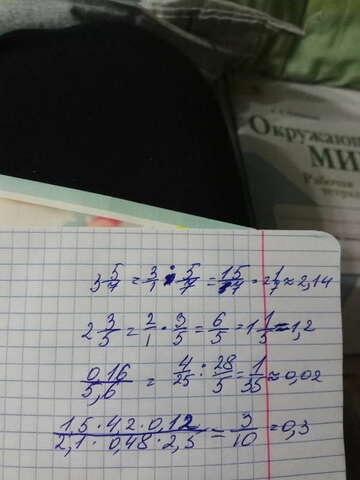 Окружающ
МИ
Рабочая
тетра
3 5/7 = 3/1 · 5/7 = 15/7 = 2 1/7 ≈ 2,14
2 3/5 = 2/1 · 3/5 = 6/5 = 1 1/5 = 1,2
0,16/5,6 = 4/25 : 28/5 = 1/35 ≈ 0,02
1,5 · 4,2 · 0,12/2,1 · 0,48 · 2,5 = 3/10 = 0,3